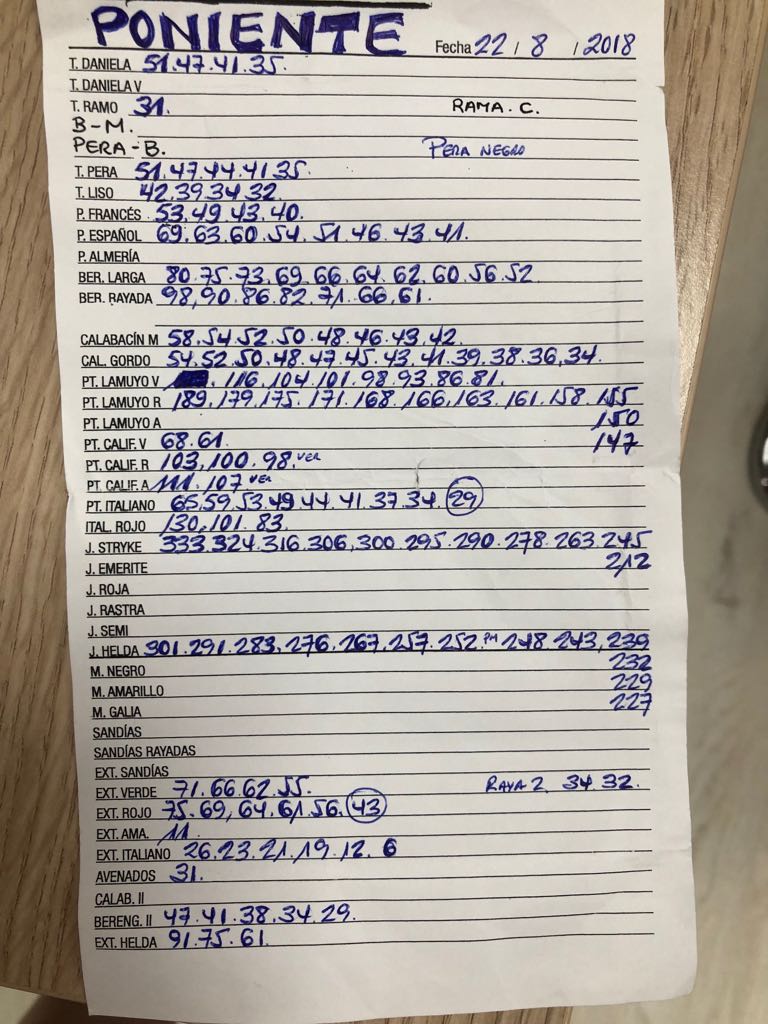 PONIENTE Fecha 22 / 8 / 2018
T. DANIELA 51.47.41.35.
T. DANELA V
T. RAMO 31. RAMA. C.
B-M.
PERA-B. PERA NEGRO
T. PERA 51.47.44.41.35.
T. LISO 42.39.34.32.
P. FRANCÉS 53.49.43.40.
P. ESPAÑOL 69.63.60.54.51.46.43.41.
P. ALMERÍA
BER. LARGA 80.75.73.69.66.64.62.60.56.52
BER. RAYADA 98,90.86.82.71.66.61.
CALABACÍN M 58.54.52.50.48.46.43.42.
CAL. GORDO 54.52.50.48.47.45.43.41.39.38.36,34.
PT. LAMUYO V . 116.104.101.98.93.86.81.
PT. LAMUYO R 189,179,175.171.168.166,163.161.158.155
PT. LAMUYO A 150
PT. CALIF. V 68.61. 147
PT. CALIF. R 103,100.98. VER
PT. CALIF. A 111.107 VER
PT. ITALIANO 65.59.53.49.44.41.37.34. 29
ITAL. ROJO 130,101.83.
J. STRYKE 333.324.316.306,300.295.290.278.263.245
J. EMERITE 212
J. ROJA
J. RASTRA
J. SEMI
J. HELDA 301.291.283.276.267.257.252. PM 248.243,239
M. NEGRO 232
M. AMARILLO 229
M. GALIA 227
SANDÍAS
SANDÍAS RAYADAS
EXT. SANDÍAS
EXT. VERDE 71.66.62.55. RAYA 2. 34 32.
EXT. ROJO 75.69,64.61.56. 43
EXT. AMA. 11.
EXT. ITALIANO 26.23.21.19.12.6
AVENADOS 31.
CALAB. II
BERENG. II 47.41.38.34.29.
EXT. HELDA 91.75.61.